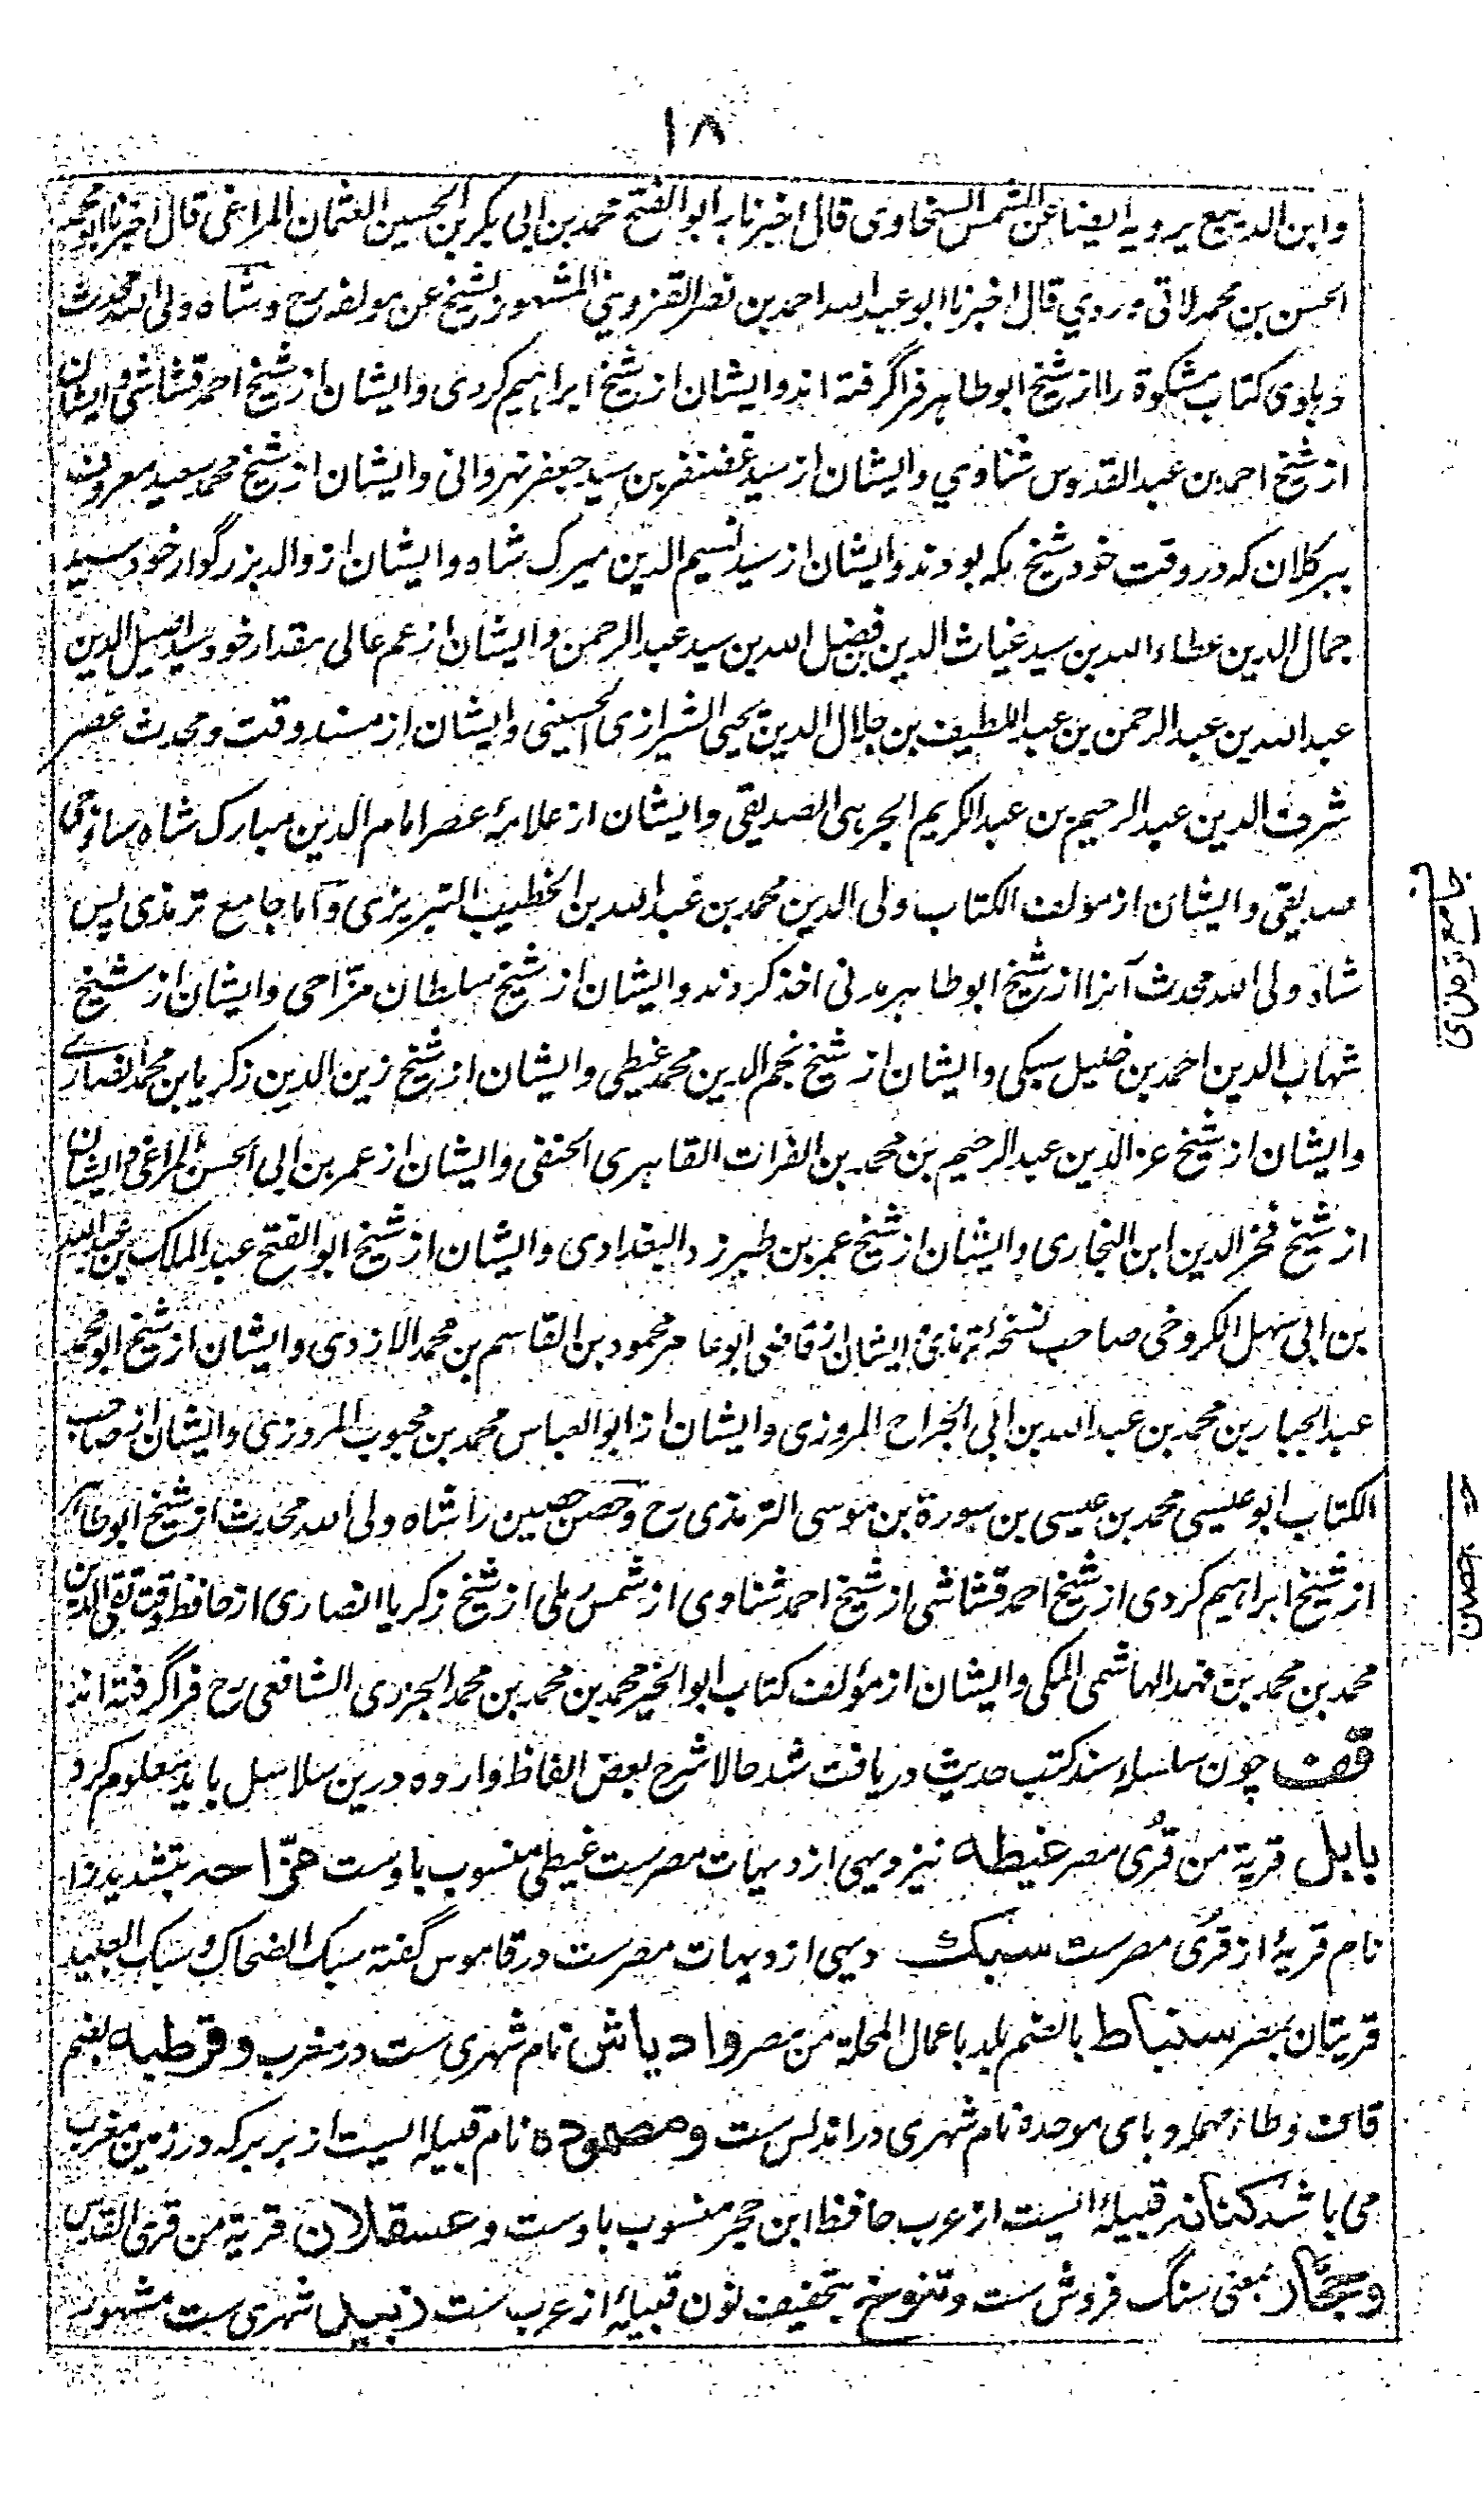 ۱۸
وابن الدیبع یرویه ایضا عن الشمس السخاوی قال اخبرنا به ابو الفتح محمد بن ابی بکر بن الحسین العثمان المراغی قال اخبرنا ابو محمد
الحسن بن محمد قال اخبرنا ابو عبد الله احمد بن نصر القزوینی المشهور بشیخ عن مولفه رح وشاه ولی الله محدث
دہلوی کتاب مشکوة را از شیخ ابو طاہر فرا گرفتہ اند وایشان از شیخ ابراہیم کردی وایشان از شیخ احمد قشاشی وایشان
از شیخ احمد بن عبد القدوس شناوی وایشان از سید غضنفر بن سید جعفر نہروانی وایشان از شیخ محمد سعید معروف
بمیر کلان که در وقت خود شیخ مکہ بودند وایشان از سید نسیم الدین میرک شاه وایشان از والد بزرگوار خود سید
جمال الدین عطاء الله بن سید غیاث الدین بن فضل الله بن سید عبد الرحمن وایشان از عم عالی مقدار خود سید اصیل الدین
عبد الله بن عبد الرحمن بن عبد اللطیف بن جلال الدین یحیی الشیرازی الحسینی وایشان از مسند وقت و محدث عصر
شرف الدین عبد الرحیم بن عبد الکریم الجرہی الصدیقی وایشان از علامۂ عصر امام الدین مبارک شاه ساوجی
صدیقی وایشان از مولف الکتاب ولی الدین محمد بن عبد الله بن الخطیب التبریزی و اما جامع ترمذی پس
جامع ترمذی
شاه ولی الله محدث آنرا از شیخ ابو طاہر مدنی اخذ کردند وایشان از شیخ سلطان مزّاحی وایشان از شیخ
شہاب الدین احمد بن خلیل سبکی وایشان از شیخ نجم الدین محمد غیطی وایشان از شیخ زین الدین زکریا بن محمد انصاری
وایشان از شیخ عز الدین عبد الرحیم بن محمد بن الفرات القاہری الحنفی وایشان از عمر بن ابی الحسن المراغی وایشان
از شیخ فخر الدین ابن البخاری وایشان از شیخ عمر بن طبرزد البغدادی وایشان از شیخ ابو الفتح عبد الملک بن عبد الله
بن ابی سہل الکروخی صاحب نسخۂ ترمذی وایشان از قاضی ابو عامر محمود بن القاسم بن محمد الازدی وایشان از شیخ ابو محمد
عبد الجبار بن محمد بن عبد الله بن ابی الجراح المروزی وایشان از ابو العباس محمد بن محبوب المروزی وایشان از صاحب
الکتاب ابو عیسی محمد بن عیسی بن سورة بن موسی الترمذی رح و حصن حصین را شاه ولی الله محدث از شیخ ابو طاہر
حصن
از شیخ ابراہیم کردی از شیخ احمد قشاشی از شیخ احمد شناوی از شمس رملی از شیخ زکریا انصاری از حافظ وقت تقی الدین
محمد بن محمد بن فہد الہاشمی المکی وایشان از مؤلف کتاب ابو الخیر محمد بن محمد بن محمد الجزری الشافعی رح فرا گرفتہ اند
قف چون سلسلہ سند کتب حدیث دریافت شد حالا شرح بعض الفاظ واردہ درین سلاسل باید معلوم کرد
بابل قریة من قُری مصر غیطه نیز دیہی از دیہات مصرست غیطی منسوب باوست مزّاحہ بتشدید زا
نام قریۂ از قری مصرست سبک دیہی از دیہات مصرست در قاموس گفتہ سبک الضحاک وسبک العبید
قریتان بمصر سنباط بالضم بلد باعمال المحلة من مصر وادیاش نام شہری ست در مغرب وقرطبه بضم
قاف وطاء مہملہ وبای موحدہ نام شہری در اندلس ست ومصموده نام قبیلہ ایست از بربر کہ در زمین مغرب
می باشد کنانه قبیلۂ ایست از عرب حافظ ابن حجر منسوب باوست وعسقلان قریة من قری القدس
وحجّار بمعنی سنگ فروش ست وتنوخ بتخفیف نون قبیلۂ از عرب ست زبید شہری ست مشہور